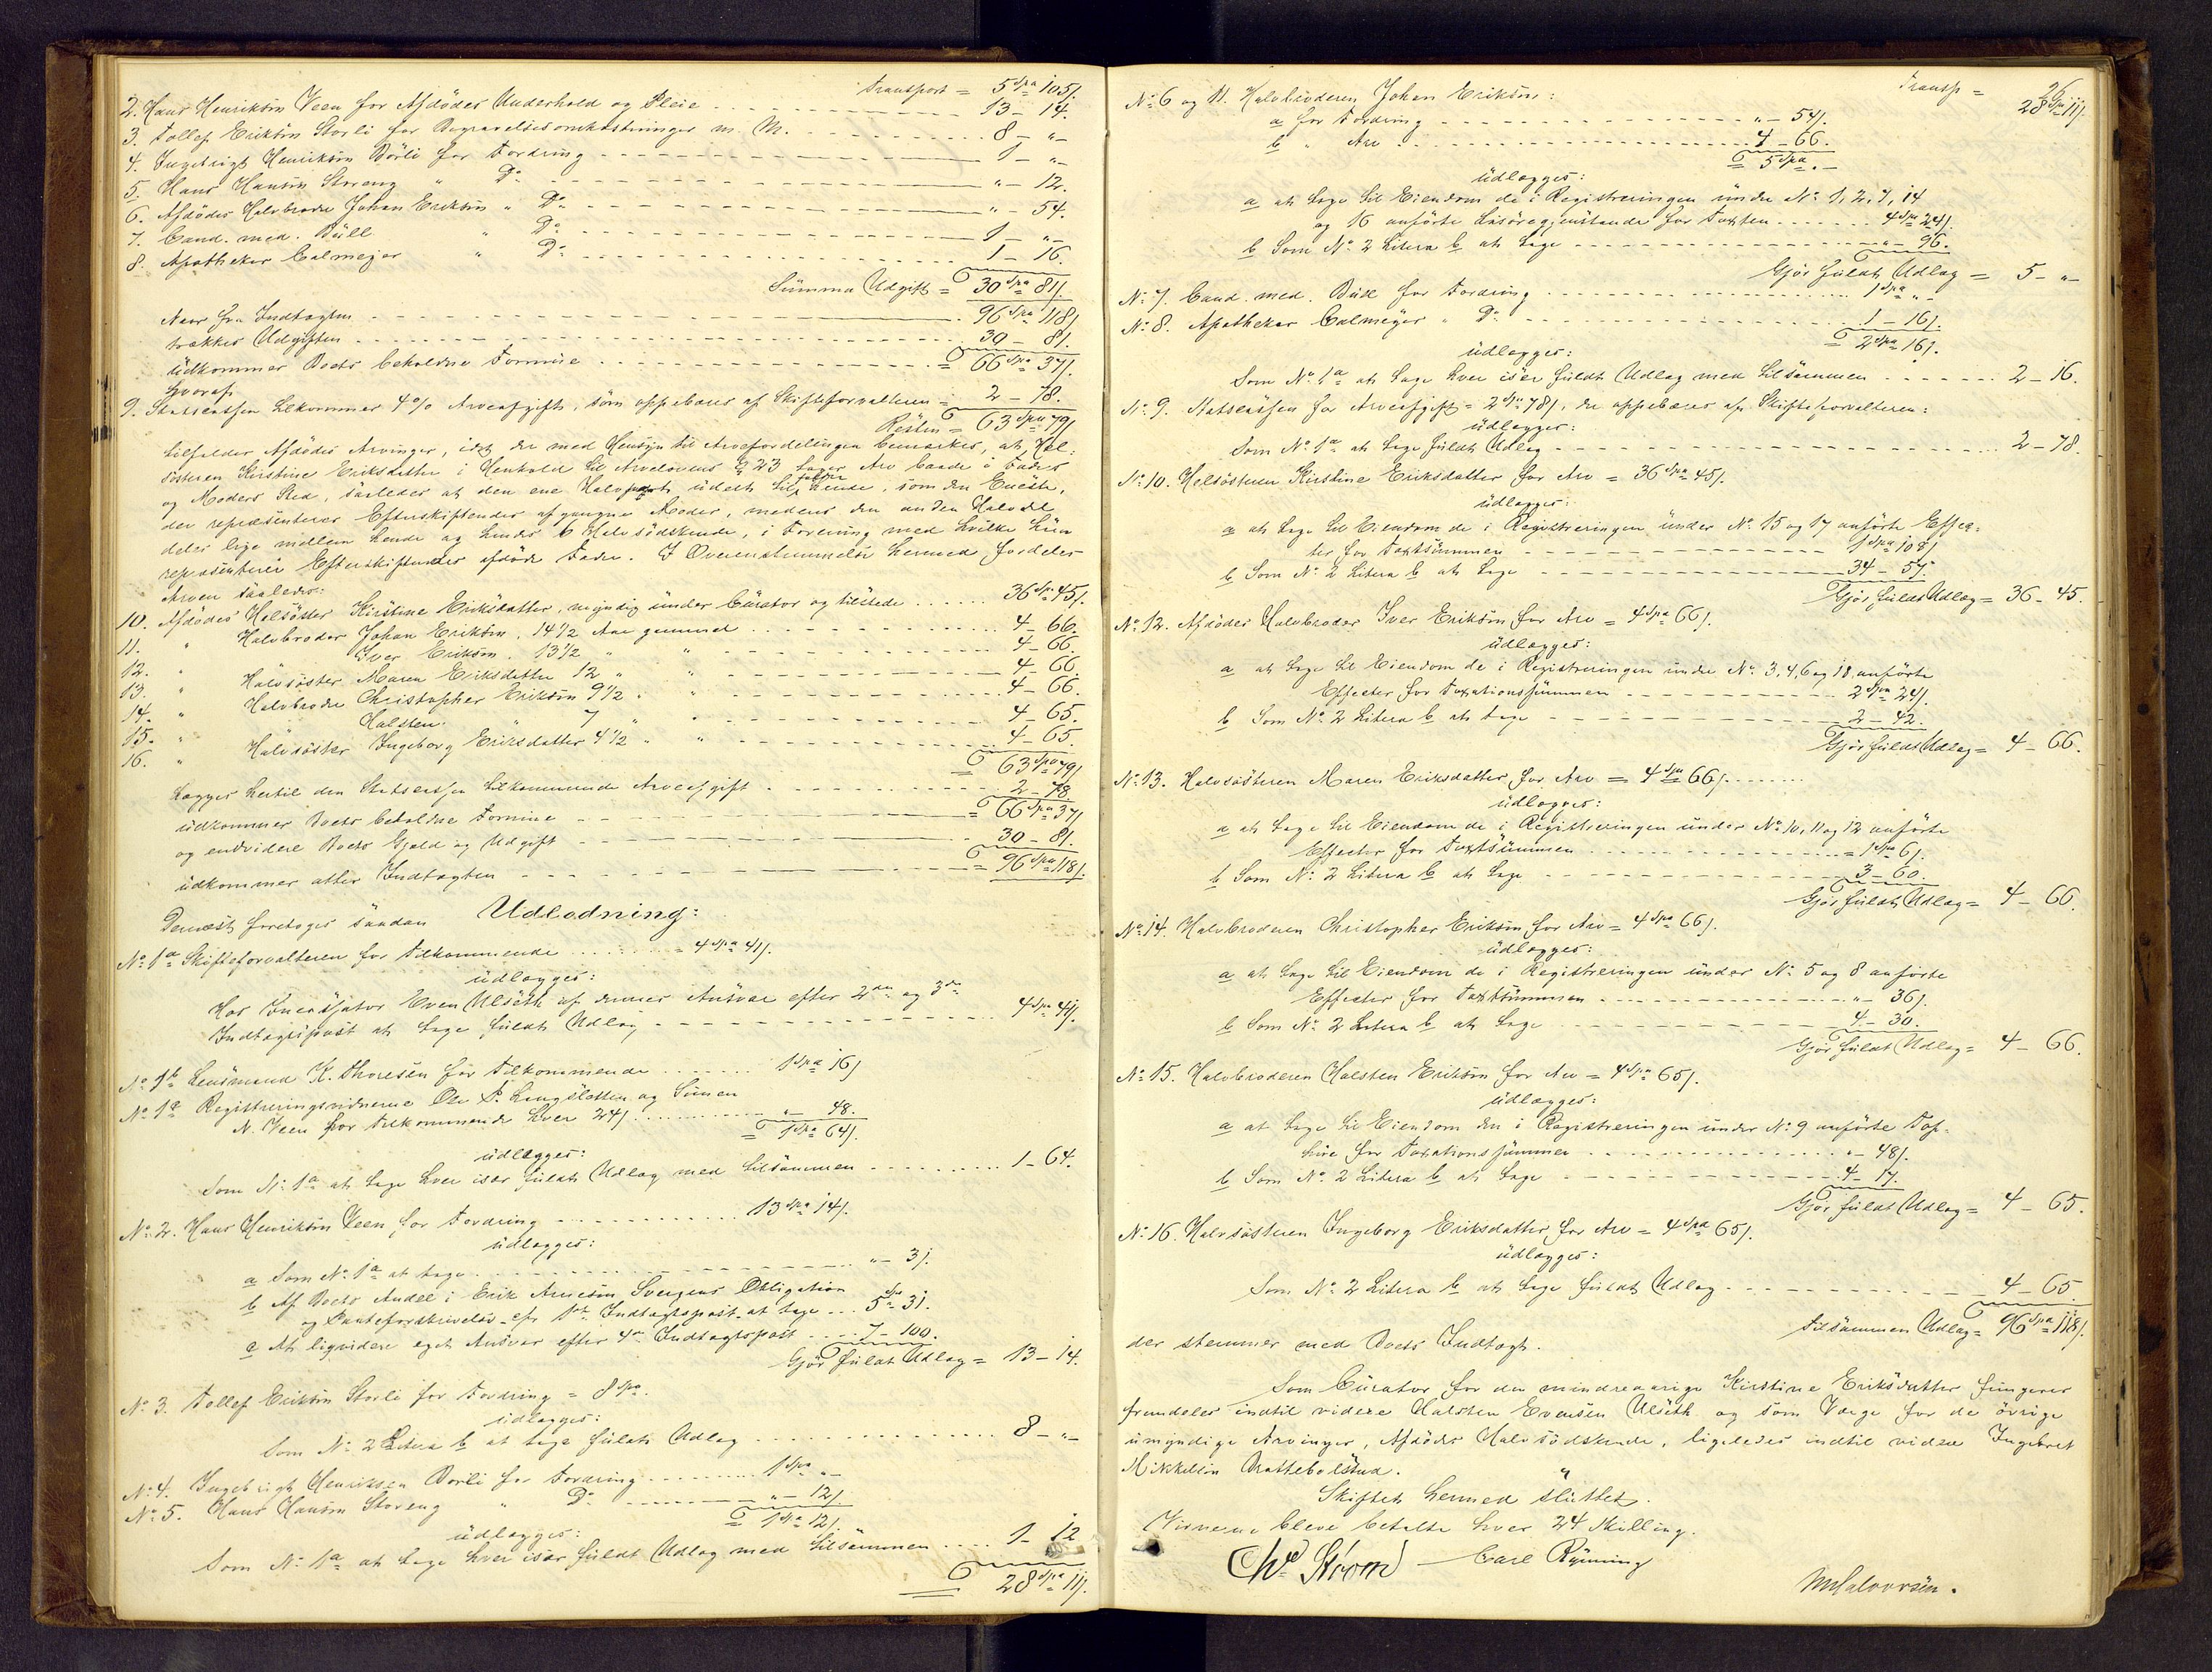 Transport = 5 Spd 105 ſ.
2. Hans Henriksøn Veen for Afdødes Underhold og Pleie 13 - 14.
3. Tollef Eriksøn Storli for Begravelsesomkostninger m. M. 8 - "-
4. Ingebrigt Henriksøn Børli for Fordring 1 - "-
5. Hans Hansøn Storeng " Do " - 12.
6. Afdødes Halvbroder Johan Eriksøn " Do " - 54.
7. Cand. med. Büll " Do 1 - "-
8. Apotheker Calmeyer " Do 1 - 16.
Summa Udgift = 30 Spd 81 ſ.
Naar fra Indtægten 96 Spd 118 ſ
trækkes Udgiften 30 - 81.
udkommer Boets beholdne Formue = 66 Spd 37 ſ.
hvoraf
9. Statscassen tilkommer 4 % Arveafgift, som oppebæres af Skifteforvalteren = 2 - 78.
Resten = 63 Spd 79 ſ
tilfalder Afdødes Arvinger, idet der med Hensyn til Arvefordelingen bemærkes, at Hel-
søsteren Kirstine Eriksdatter i Henhold til Arvelovens § 23 tager Arv baade i Faders
og Moders Sted, saaledes at den ene Halvpart udelt tilfalder hende, som den Eneste,
der repræsenterer Efterskiftendes afgangne Moder, medens den anden Halvdel
deles lige mellem hende og hendes 6 Halvsødskende, i Forening med hvilke hun
repræsenterer Efterskiftendes afdøde Fader. I Overensstemmelse hermed fordeles
Arven saaledes:
10. Afdødes Helsøster Kirstine Eriksdatter, myndig under Curator og tilstede 36 Spd 45 ſ.
11. " Halvbroder Johan Eriksøn, 14 1/2 Aar gammel 4 - 66.
12. " Iver Eriksøn, 13 1/2 " " 4 - 66.
13. " Halvsøster Maren Eriksdatter 12 " " 4 - 66
14. " Halvbroder Christopher Eriksøn 9 1/2 " " 4 - 66.
15. " Halsten " 7 " " 4 - 65.
16. " Halvsøster Ingeborg Eriksdatter 4 1/2 " " 4 - 65.
= 63 Spd 79 ſ
Lægges hertil den Statscassen tilkommende Arveafgift 2 - 78
udkommer Boets beholdne Formue = 66 Spd 37 ſ
og endvidere Boets Gjæld og Udgift 30 - 81.
udkommer atter Indtægten = 96 Spd 118 ſ.
Dernæst foretoges saadan Udlodning:
No 1a Skifteforvalteren for Tilkommende = 4 Spd 41 ſ.
udlægges:
Hos Incassator Even Ulseth af dennes Ansvar efter 2den og 3die
Indtægtspost at tage fuldt Udlæg 4 Spd 41 ſ.
No 1b Lensmand K. Thoresen for Tilkommende 1 Spd 16 ſ
No 1c Registreringsvidnerne Ole P. Langsletten og Simen
N. Veen for Tilkommende hver 24 ſ " - 48.
= 1 Spd 64 ſ.
udlægges:
Som No 1a at tage hver især fuldt Udlæg med tilsammen 1 - 64.
No 2. Hans Henriksøn Veen for Fordring 13 Spd 14 ſ.
udlægges:
a Som No 1a at tage " - 3 ſ.
b Af Boets Andel i Erik Arnesøn Svergens Obligation
og Panteforskrivelse efter 1ste Indtægtspost at tage 5 Spd 31.
c At liqvidere eget Ansvar efter 4de Indtægtspost 7 - 100.
Gjør fuldt Udlæg = 13 - 14.
No 3. Tollef Eriksøn Storli for Fordring = 8 Spd.
udlægges:
Som No 2 Litera b at tage fuldt Udlæg 8 - "-
No 4. Ingebrigt Henriksen Børli for Fordring 1 Spd "-
No 5. Hans Hansøn Storeng " Do " - 12 ſ
= 1 Spd 12 ſ.
udlægges:
Som No 1a at tage hver især fuldt Udlæg med tilsammen 1 - 12
28 Spd 11 ſ.
26
Transp = 28 Spd 11 ſ.
No 6 og 11. Halvbroderen Johan Eriksøn:
a for Fordring " - 54 ſ.
b " Arv 4 - 66.
= 5 Spd. -
udlægges:
a at tage til Eiendom de i Registreringen under No 1, 2, 7, 14
og 16 anførte Løsøregjenstande for Taxten 4 Spd 24 ſ.
b Som No 2 Litera b at tage " - 96.
Gjør fuldt Udlæg = 5 - "-
No 7. Cand. med. Büll for Fordring 1 Spd "-
No 8. Apotheker Calmeyer " Do 1 - 16 ſ.
= 2 Spd 16 ſ.
udlægges:
Som No 1a at tage hver især fuldt Udlæg med tilsammen 2 - 16.
No 9. Statscassen for Arveafgift = 2 Spd 78 ſ, der oppebæres af Skifteforvalteren:
udlægges:
Som No 1a at tage fuldt Udlæg 2 - 78.
No 10. Helsøsteren Kirstine Eriksdatter for Arv = 36 Spd 45 ſ.
udlægges:
a at tage til Eiendom de i Registreringen under No 15 og 17 anførte Effec-
ter for Taxtsummen 1 Spd 108 ſ
b Som No 2 Litera b at tage 34 - 57.
Gjør fuldt Udlæg = 36 - 45.
No 12. Afdødes Halvbroder Iver Eriksøn for Arv = 4 Spd 66 ſ.
udlægges:
a at tage til Eiendom de i Registreringen under No 3, 4, 6 og 18 anførte
Effecter for Taxationssummen 2 Spd 24 ſ.
b Som No 2 Litera b at tage 2 - 42.
Gjør fuldt Udlæg = 4 - 66.
No 13. Halvsøsteren Maren Eriksdatter, for Arv = 4 Spd 66 ſ.
udlægges:
a at tage til Eiendom de i Registreringen under No 10, 11 og 12 anførte
Effecter for Taxtsummen = 1 Spd 6 ſ.
b Som No 2 Litera b at tage 3 - 60.
Gjør fuldt Udlæg = 4 - 66.
No 14. Halvbroderen Christopher Eriksøn for Arv = 4 Spd 66 ſ.
udlægges:
a at tage til Eiendom de i Registreringen under No 5 og 8 anførte
Effecter for Taxtsummen " - 36 ſ.
b Som No 2 Litera b at tage 4 - 30.
Gjør fuldt Udlæg = 4 - 66.
No 15. Halvbroderen Halsten Eriksøn for Arv = 4 Spd 65 ſ.
udlægges:
a at tage til Eiendom den i Registreringen under No 9 anførte
for Taxationssummen " - 48 ſ.
b Som No 2 Litera b at tage 4 - 17.
Gjør fuldt Udlæg = 4 - 65.
No 16. Halvsøsteren Ingeborg Eriksdatter, for Arv = 4 Spd 65 ſ.
udlægges:
Som No 2 Litera b at tage fuldt Udlæg 4 - 65
Tilsammen Udlæg = 96 Spd 118 ſ.
der stemmer med Boets Indtægt.
Som Curator for den mindreaarige Kirstine Eriksdatter fungerer
fremdeles indtil videre Halsten Evensen Ulseth og som Værge for de øvrige
umyndige Arvinger, Afdødes Halvsødskende, ligeledes indtil videre Ingebret
Mikkelsøn Brattebolstad.
Skiftet hermed sluttet.
Vidnerne bleve betalte hver 24 Skilling.
Chr Strøm Carl Rønning
M Halvorsen.